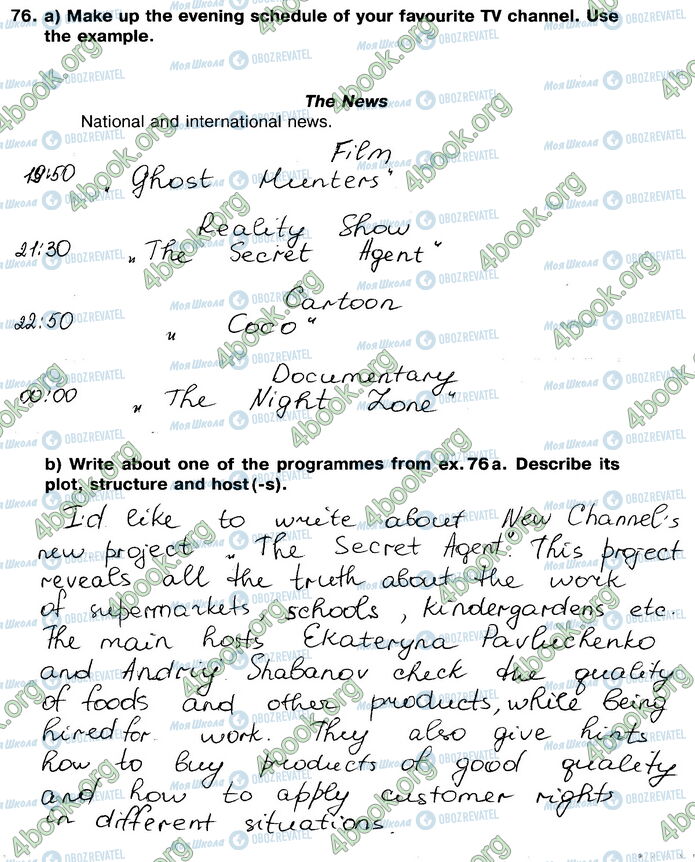 76. a) Make up the evening schedule of your favourite TV channel. Use
the example.
The News
National and international news.
Film
19:50 „Ghost Hunters"
Reality Show
21:30 „The Secret Agent"
Cartoon
22:50 „Coco"
Documentary
00:00 „The Night Zone"
b) Write about one of the programmes from ex. 76 a. Describe its
plot, structure and host (-s).
I'd like to write about New Channel's
new project „The Secret Agent". This project
reveals all the truth about the work
of supermarkets, schools, kindergardens etc.
The main hosts Ekateryna Pavliuchenko
and Andriy Shabanov check the quality
of foods and other products, while being
hired for work. They also give hints
how to buy products of good quality
and how to apply customer rights
in different situations.